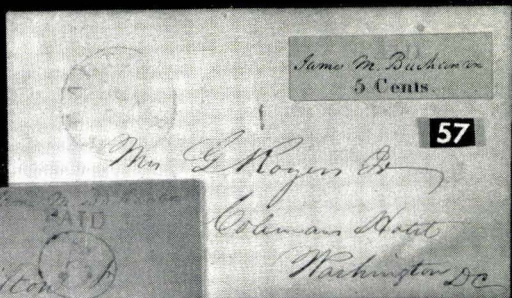 James M. Buchanan
5 Cents.
57
Mrs G Rogers Jr
Colemans Hotel
Washington DC
PAID